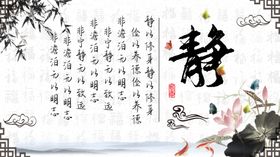 静
静以修身静以修身
俭以养德俭以养德
非澹泊无以明志
非宁静无以致远
非澹泊无以明志
非澹泊无以明志